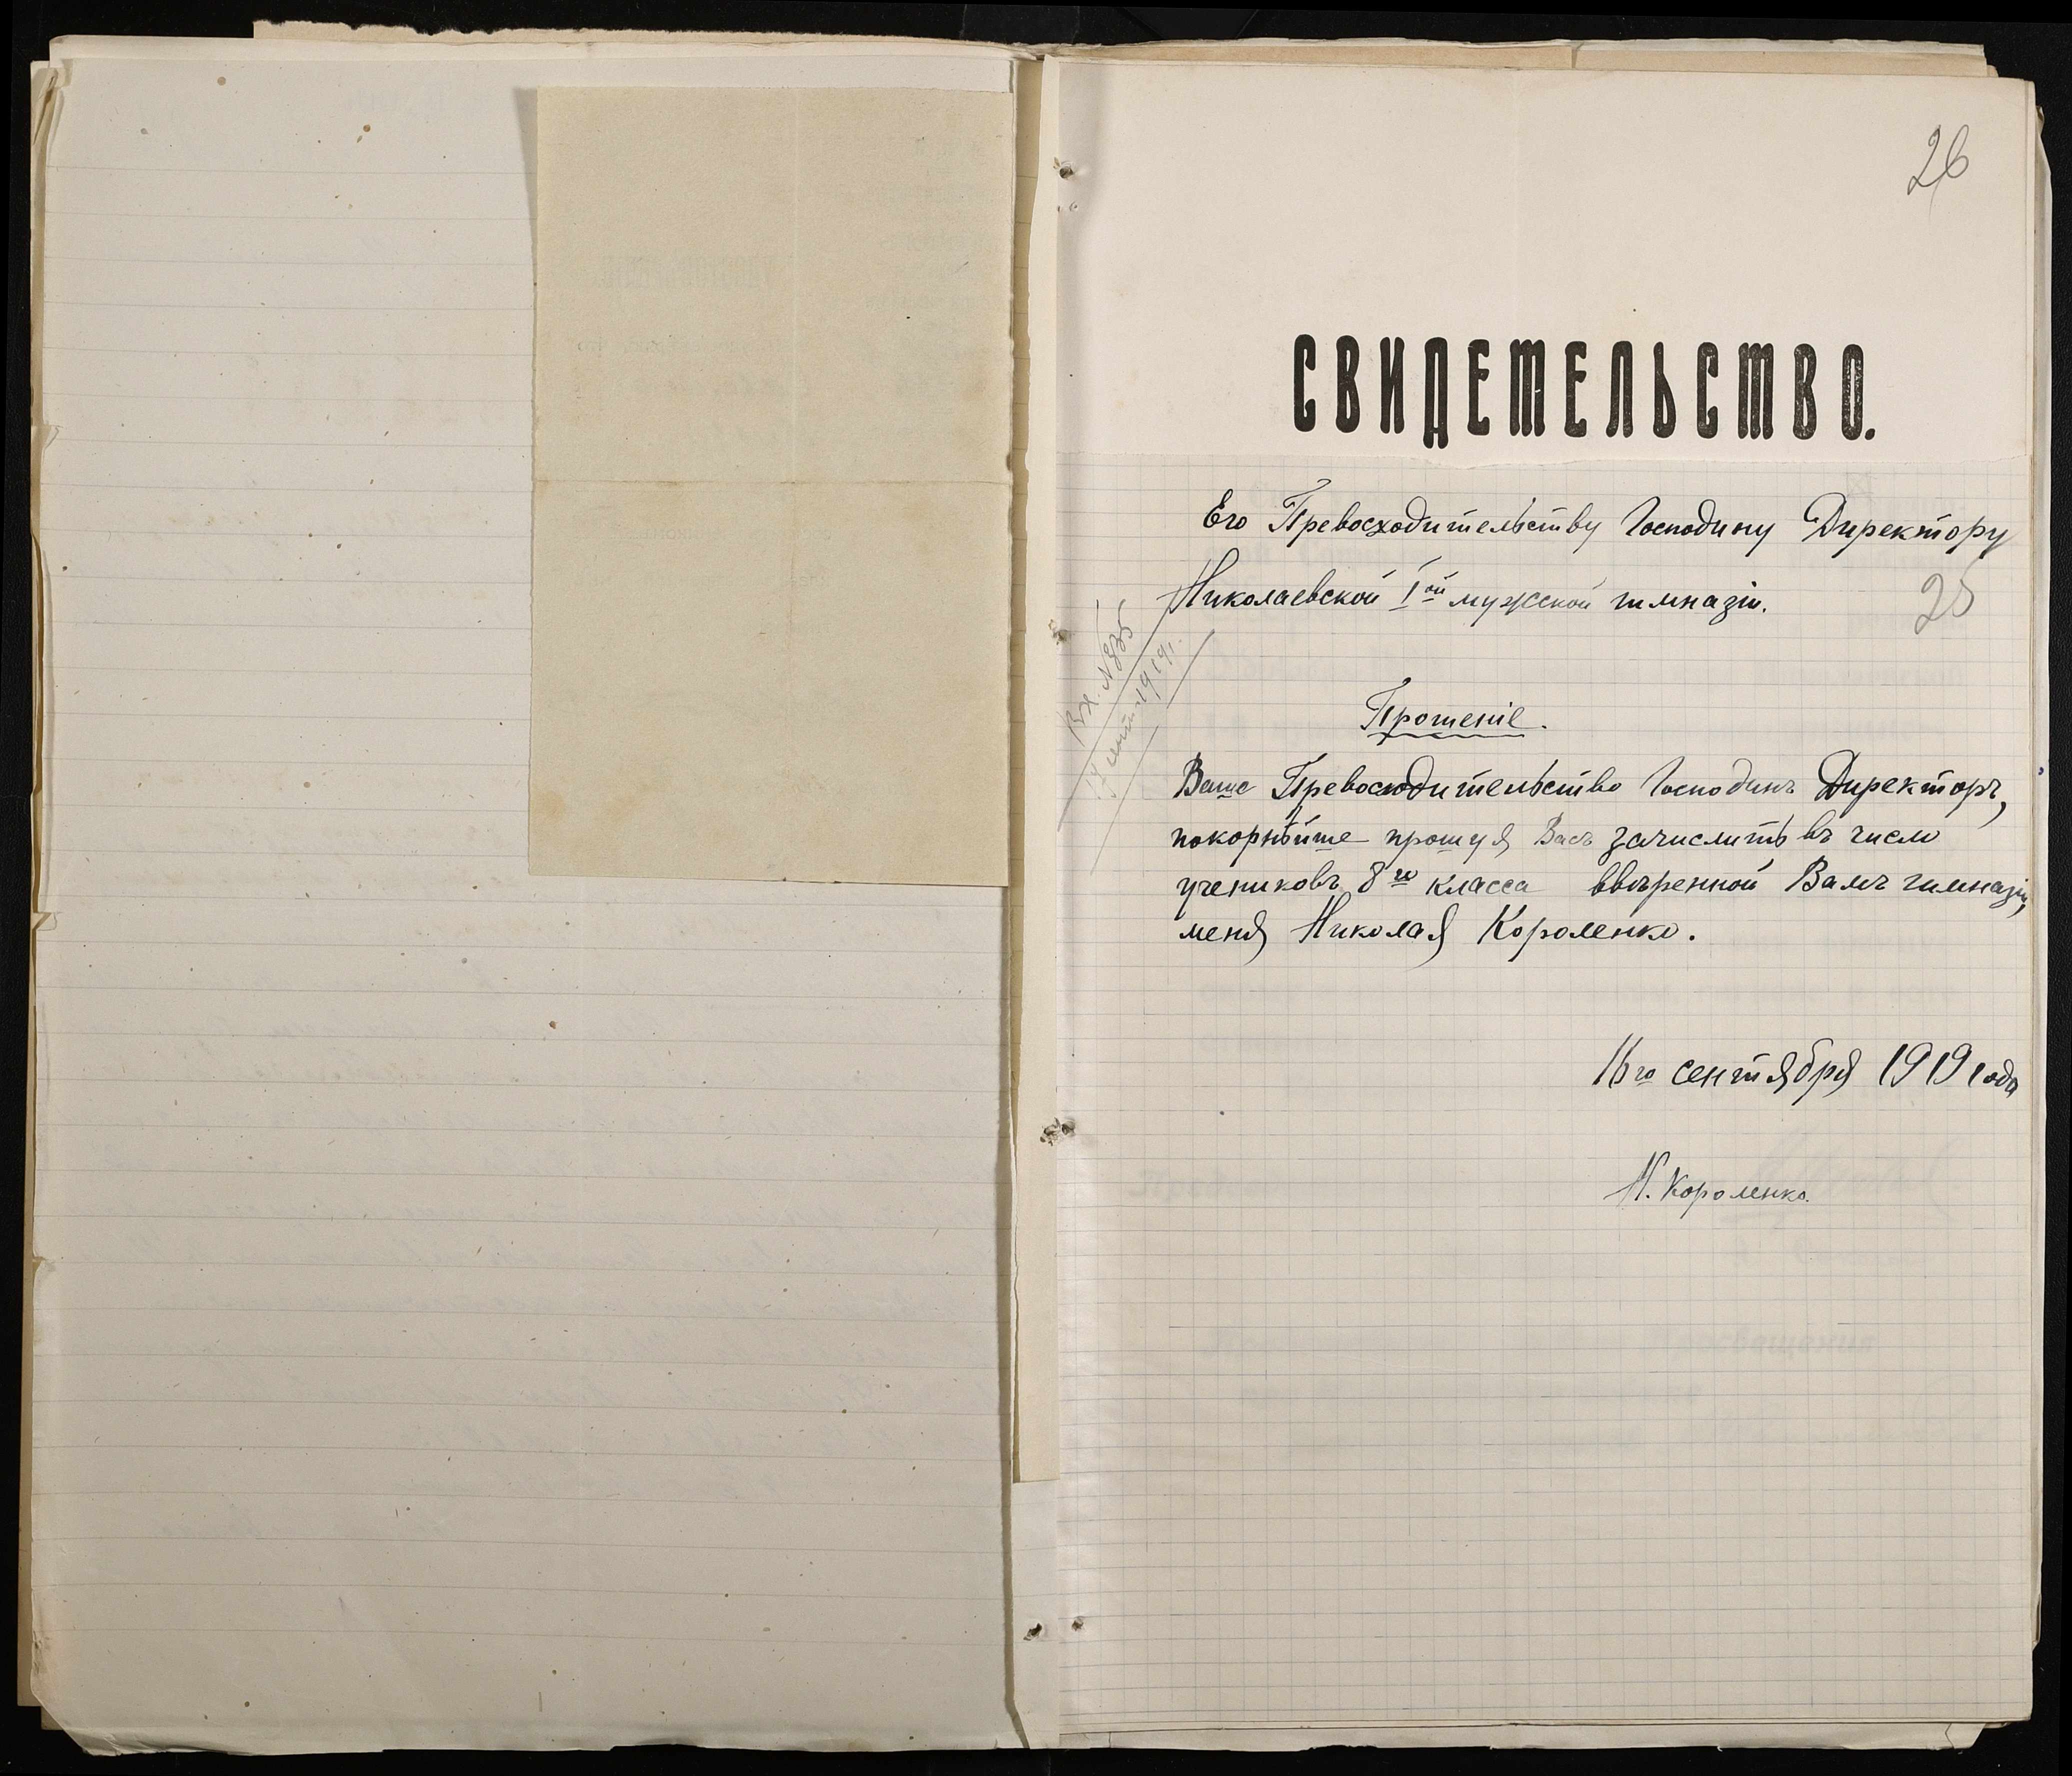 26
СВИДЕТЕЛЬСТВО.
Его Превосходительству Господину Директору
Николаевской I ой мужской гимназіи.
25
Вх. №
1919 г.
Прошеніе.
Ваше Превосходительство Господинъ Директоръ,
покорнѣйше прошу я Васъ зачислить въ число
учениковъ 8 го класса ввѣренной Вамъ гимназіи,
меня Николая Короленко.
16 го сентября 1919 года
Н. Короленко.